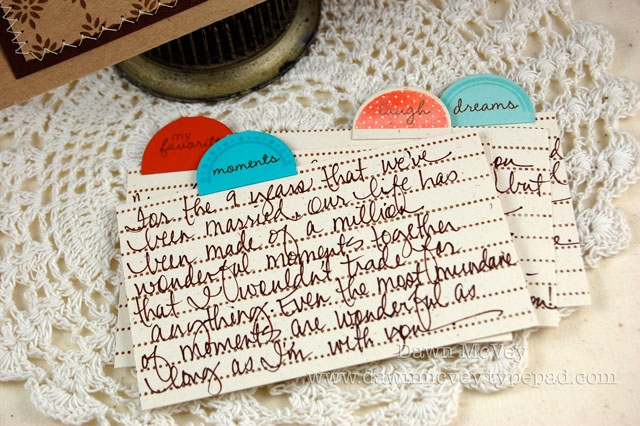 my
favorite
moments
laugh
dreams
For the 9 years that we've
been married, our life has
been made of a million
wonderful moments together
that I wouldn't trade for
anything. Even the most mundane
of moments are wonderful as
long as I'm with you
you
but
Dawn McVey
www.dawnmcvey.typepad.com